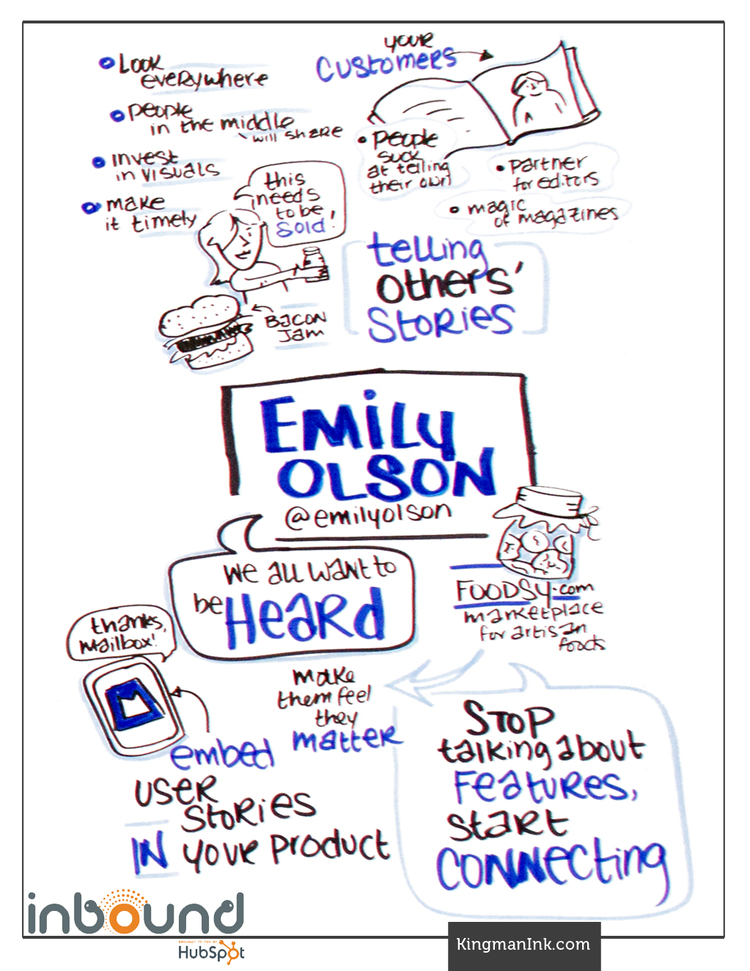 Look
everywhere
people
in the middle
will share
invest
in visuals
make
it timely
your
customers
People
suck
at telling
their own
Partner
for editors
magic
of magazines
this
needs
to be
sold!
BACON
JAM
telling
others'
stories
EMILY
OLSON
@emilyolson
we all want to
be HeaRd
FOODSY.com
marketplace
for artisan
foods
thanks,
mailbox!
make
them feel
they
matter
embed
user
stories
IN your product
STOP
talking about
Features,
start
connecting
inbound
BROUGHT TO YOU BY
HubSpot
KingmanInk.com